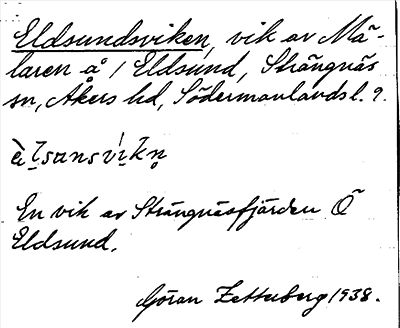 Eldsundsviken, vik av Mä-
laren å / Eldsund, Strängnäs
sn, Åkers hd, Södermanlands l.
èl̥sunsvìkn̥
En vik av Strängnäsfjärden Ö
Eldsund.
Göran Zetterberg 1938.